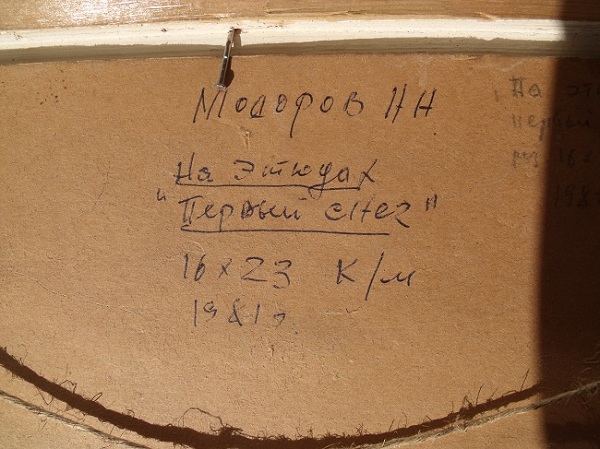 Модоров Н Н
На этюдах
"Первый снег"
16 × 23 К/м
1981г.
На эт
первый
16 ×
198